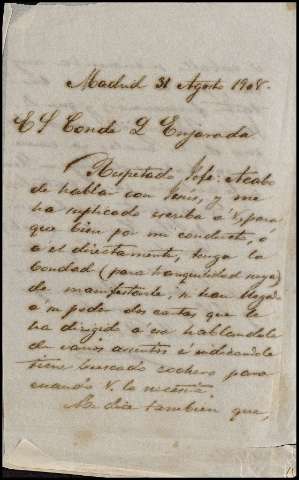 Madrid 31 Agosto 1908.
E S Conde D Enjarada
Respetado Jefe: Acabo
de hablar con Jesús, y me
ha suplicado escriba a V. para
que bien por mi conducto, ó
a el directamente, tenga la
bondad (para tranquilidad suya)
de manifestarle, si han llegado
a su poder dos cartas que le
ha dirigido a esa hablandole
de varios asuntos é indicandole
tiene buscado cochero para
cuando V. lo necesite
Me dice tambien que,